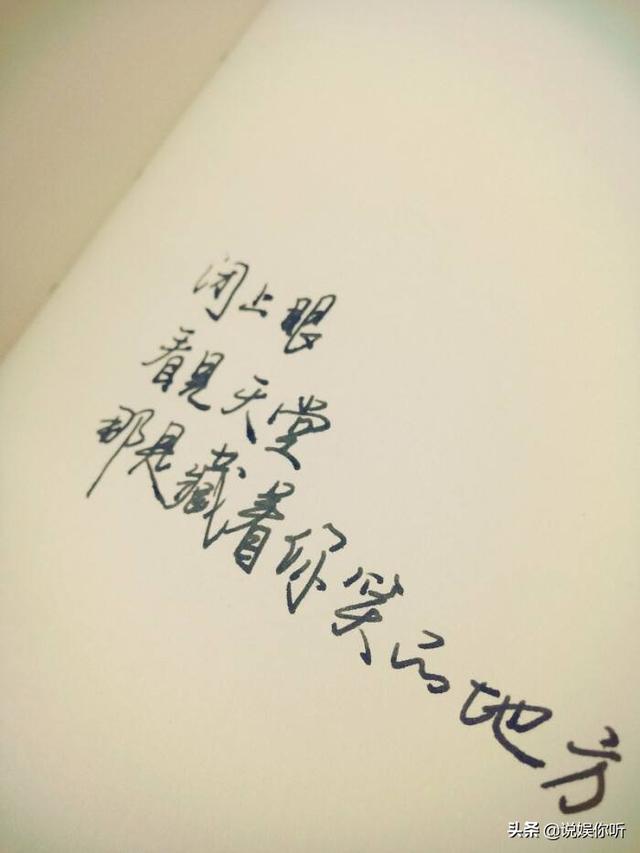 闭上眼
看见天堂
那是藏着你笑的地方
头条 @说娱你听